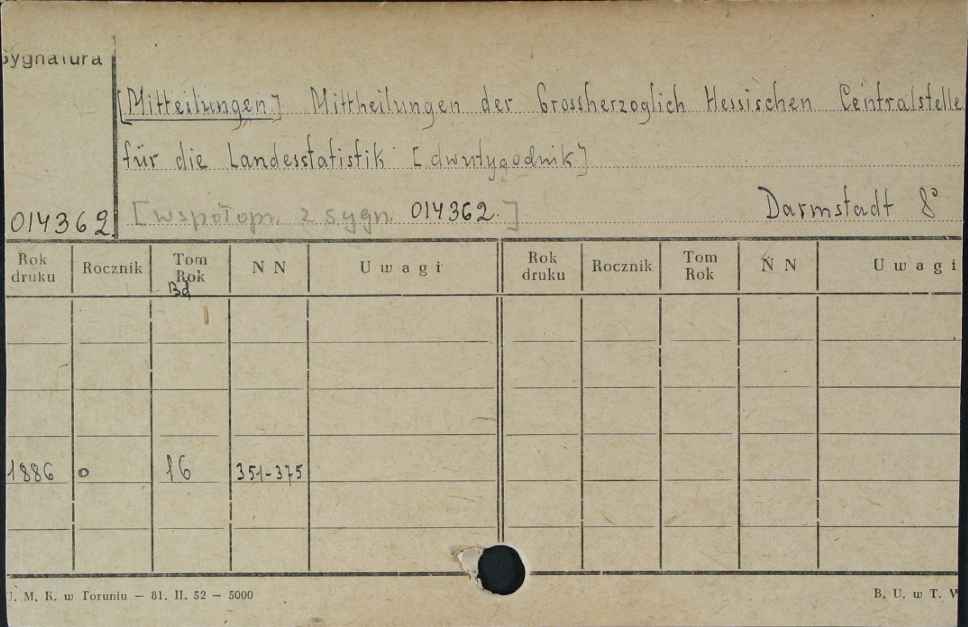 Sygnatura
[Mitteilungen] Mittheilungen der Grossherzoglich Hessischen Centralstelle
für die Landesstatistik [dwutygodnik]
014362 [współopr. z sygn. 014362.] Darmstadt 8°
Rok druku Rocznik Tom Rok Bd N N Uwagi Rok druku Rocznik Tom Rok N N Uwagi
1886 o 16 351-375
U. M. K. w Toruniu — 81. II. 52 — 5000 B. U. w T. W